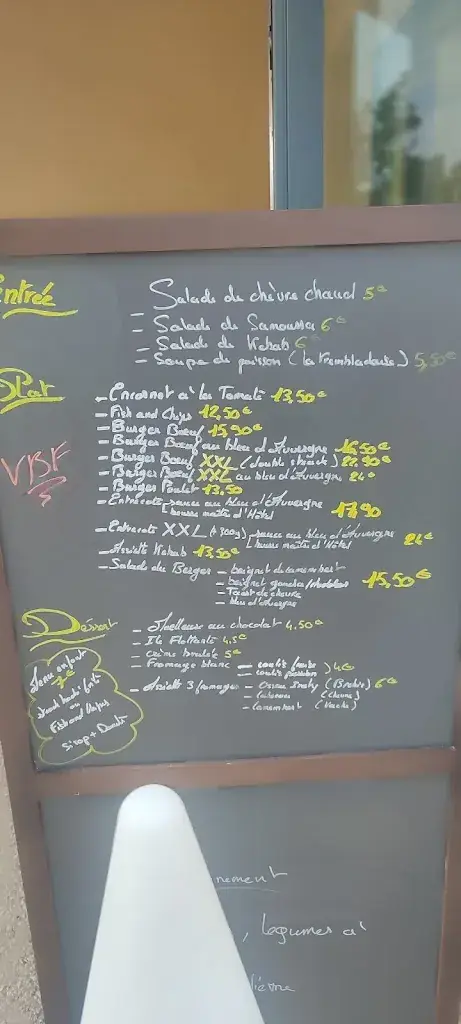 Entrée
Salade de chèvre chaud 5€
- Salade de Samoussa 6€
- Salade de Kebab 6€
- Soupe de poisson (la Trembladaise) 5,50€
Plat
- Encornet a' la Tomate 13,50€
- Fish and Chips 12,50€
- Burger Boeuf 15,90€
- Burger Boeuf au bleu d'Auvergne 16,50€
VBF
- Burger Boeuf XXL (double steack) 22,90€
- Burger Boeuf XXL au bleu d'Auvergne 24€
- Burger Poulet 13,50
- Entrecote sauce au bleu d'Auvergne
beurre maître d'Hôtel 17,90
- Entrecote XXL (+300g) sauce au bleu d'Auvergne
beurre maître d'Hôtel 24€
- Assiette Kebab 13,50€
- Salade du Berger - beignet de camembert
- beignet gouda 15,50€
- Toast de chèvre
- bleu d'Auvergne
Dessert
- Moelleux au chocolat 4.50€
- Ile Flottante 4.5€
- Crème brulée 5€
- Fromage blanc - coulis fraise
- coulis passion 4€
- Assiette 3 fromages - Ossau Iraty (Brebis) 6€
- (Chèvre)
- Camembert (Vache)
Menu enfant
7€
steack haché frite
ou
Fish and Chips
Sirop + Donuts
nement
, legumes a'